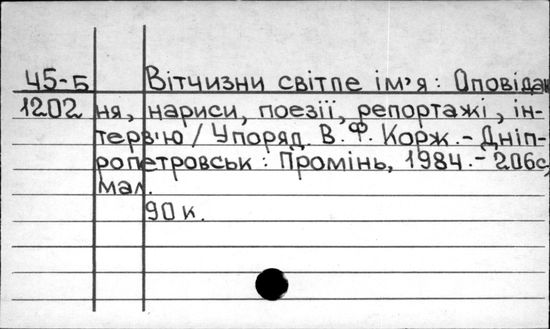 45-Б Вітчизни світле ім'я: Оповідан
1202 ня, нариси, поезії, репортажі, ін-
терв'ю / Упоряд. В.Ф. Корж. - Дніп-
ропетровськ: Промінь, 1984. - 206с,
мал.
90 к.